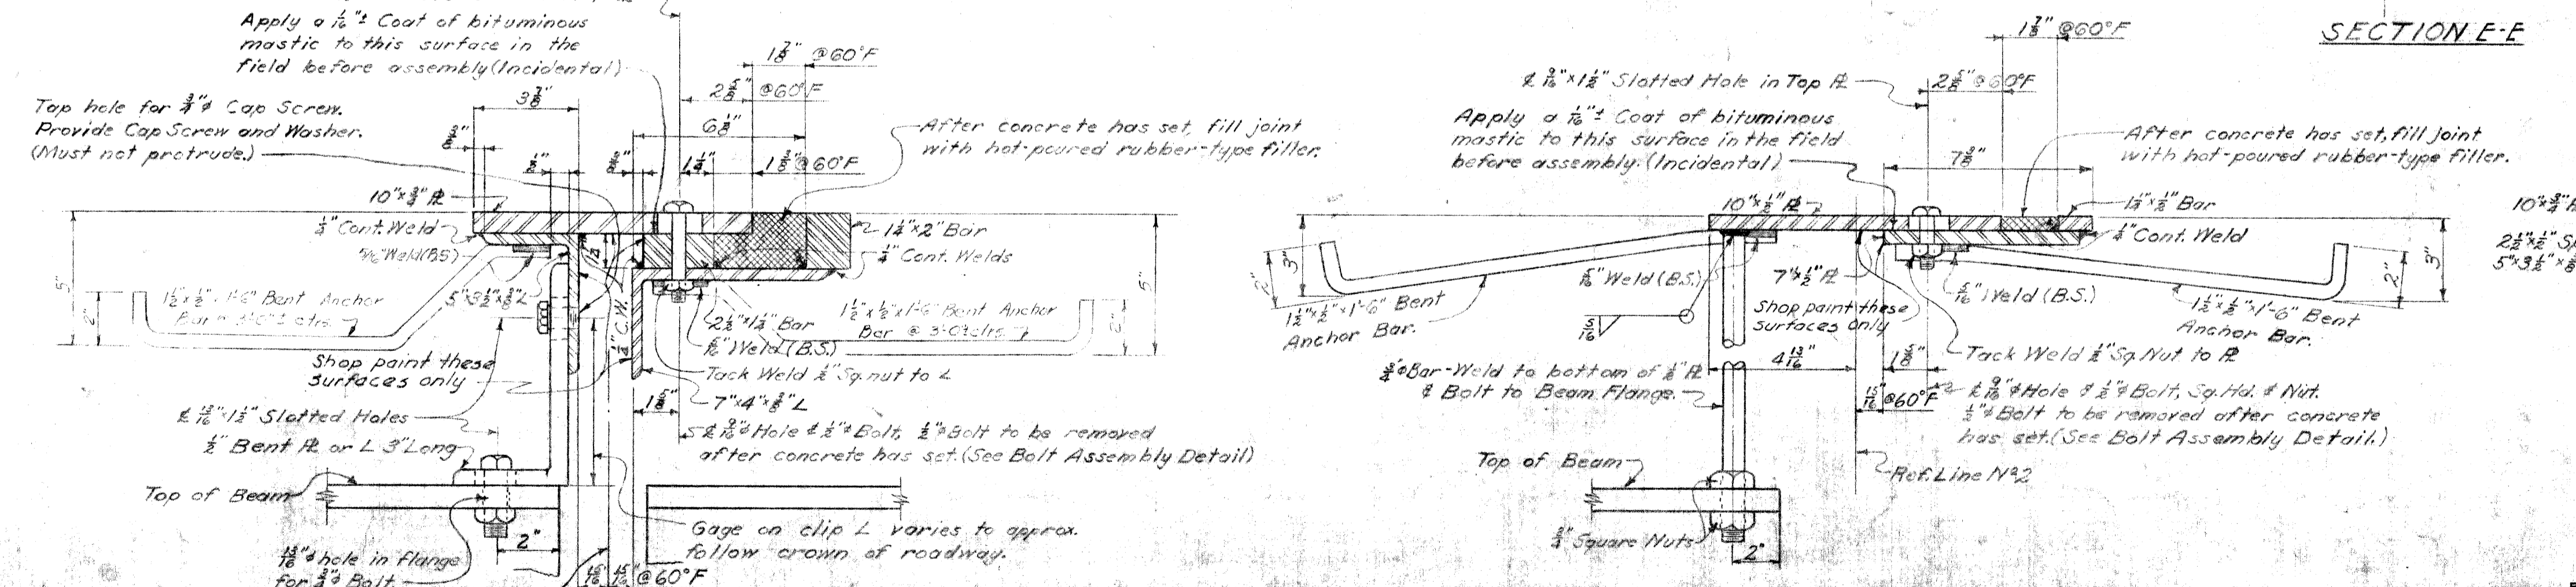 Apply a 1/16"± Coat of bituminous
mastic to this surface in the
field before assembly (Incidental)
Tap hole for 3/4"φ Cap Screw.
Provide Cap Screw and Washer.
(Must not protrude.)
3 7/8"
1 7/8" @60°F
2 5/8" @60°F
6 1/8"
1 1/4"
1 3/8" @60°F
After concrete has set, fill joint
with hot-poured rubber-type filler.
10"x3/8" PL
1/4" Cont. Weld
5/16" Weld (B.S)
1 1/4"x2" Bar
1/4" Cont. Welds
5"
2"
1 1/2"x1/2"x1'-6" Bent Anchor
Bar
5"x3 1/2"x3/8" L
1/4" C.W.
2 1/2"x1 1/4" Bar
5/16" Weld (B.S.)
1 1/2"x1/2"x1'-6" Bent Anchor
Bar @ 3'-0" ctrs.
5"
2"
Shop paint these
surfaces only
Tack Weld 1/2" Sq. nut to L
7"x4"x3/8" L
1 5/8"
℄ 13/16"x1 1/2" Slotted Holes
1/2" Bent PL or L 3" Long
℄ 9/16"φ Hole & 1/2"φ Bolt, 1/2"φ Bolt to be removed
after concrete has set. (See Bolt Assembly Detail)
Top of Beam
2"
Gage on clip L varies to approx.
follow crown of roadway.
13/16"φ hole in flange
for 3/4"φ Bolt
15/16" @60°F
SECTION E-E
1 7/8" @60°F
℄ 9/16"x1 1/2" Slotted Hole in Top PL
2 5/8" @60°F
Apply a 1/16"± Coat of bituminous
mastic to this surface in the field
before assembly. (Incidental)
7 3/8"
After concrete has set, fill joint
with hot-poured rubber-type filler.
10"x1/2" PL
1 1/4"x1/2" Bar
1/4" Cont. Weld
2"
3"
5/16" Weld (B.S.)
7"x1/2" PL
5/16" Weld (B.S.)
1 1/2"x1/2"x1'-6" Bent
Anchor Bar.
5/16
Shop paint these
surfaces only
1 1/2"x1/2"x1'-6" Bent
Anchor Bar.
2"
3"
3/4"φ Bar-Weld to bottom of 1/2" PL
& Bolt to Beam Flange.
4 13/16"
1 5/8"
Tack Weld 1/2" Sq. Nut to PL
15/16" @60°F
℄ 9/16"φ Hole & 1/2"φ Bolt, Sq. Hd. & Nut.
1/2"φ Bolt to be removed after concrete
has set. (See Bolt Assembly Detail.)
Top of Beam
Ref. Line Nº2
3/4" Square Nuts
2"